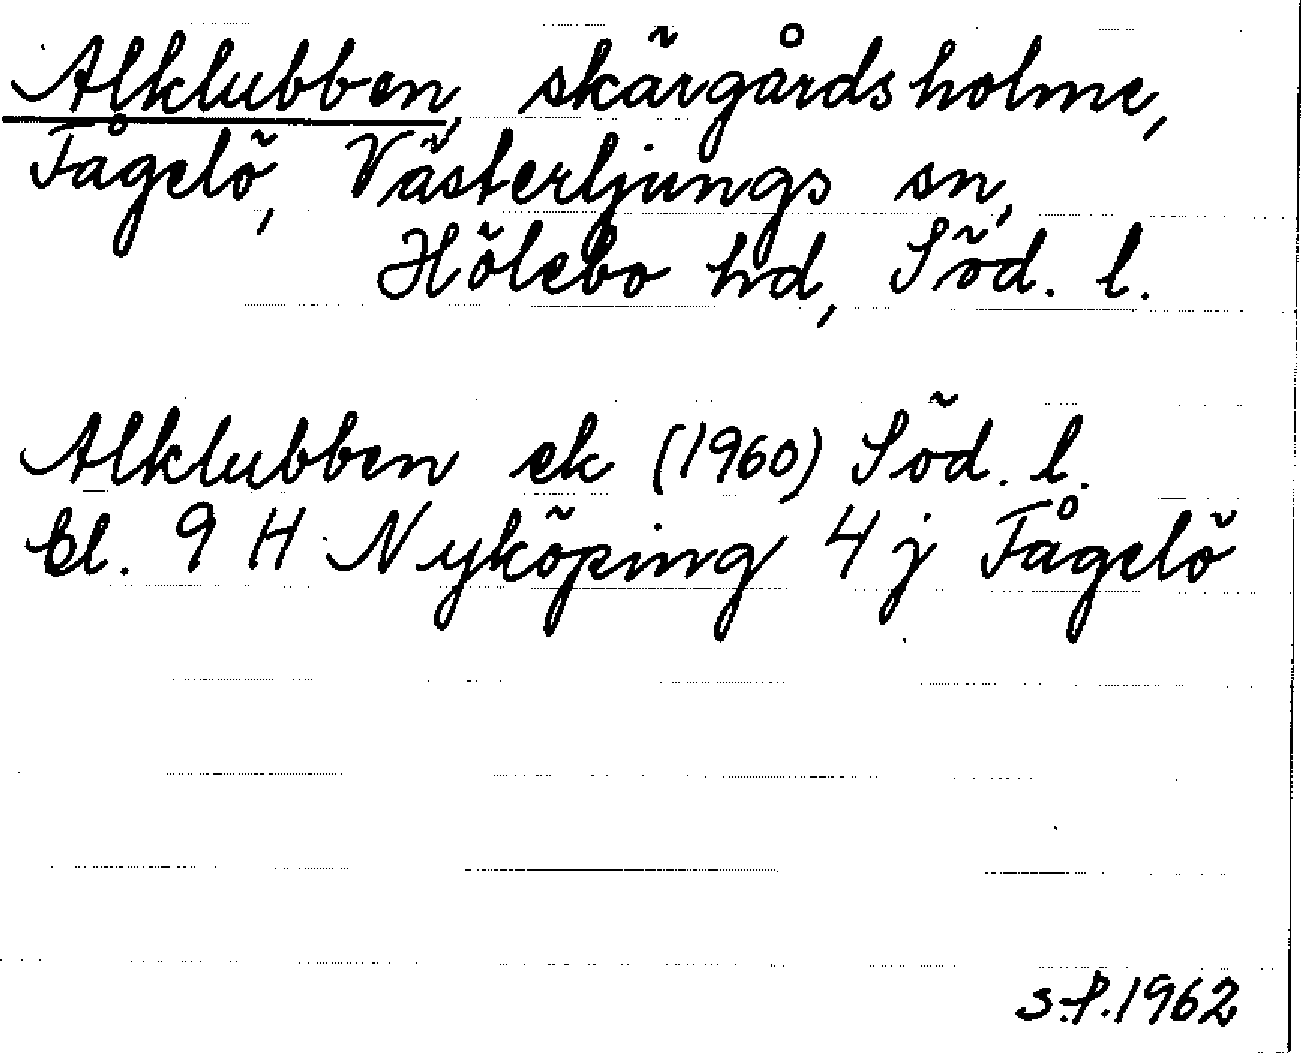 Alklubben, skärgårdsholme,
Fågelö, Västerljungs sn,
Hölebo hd, Söd. l.
Alklubben ek (1960) Söd. l.
bl. 9 H Nyköping 4 j Fågelö
S.P. 1962